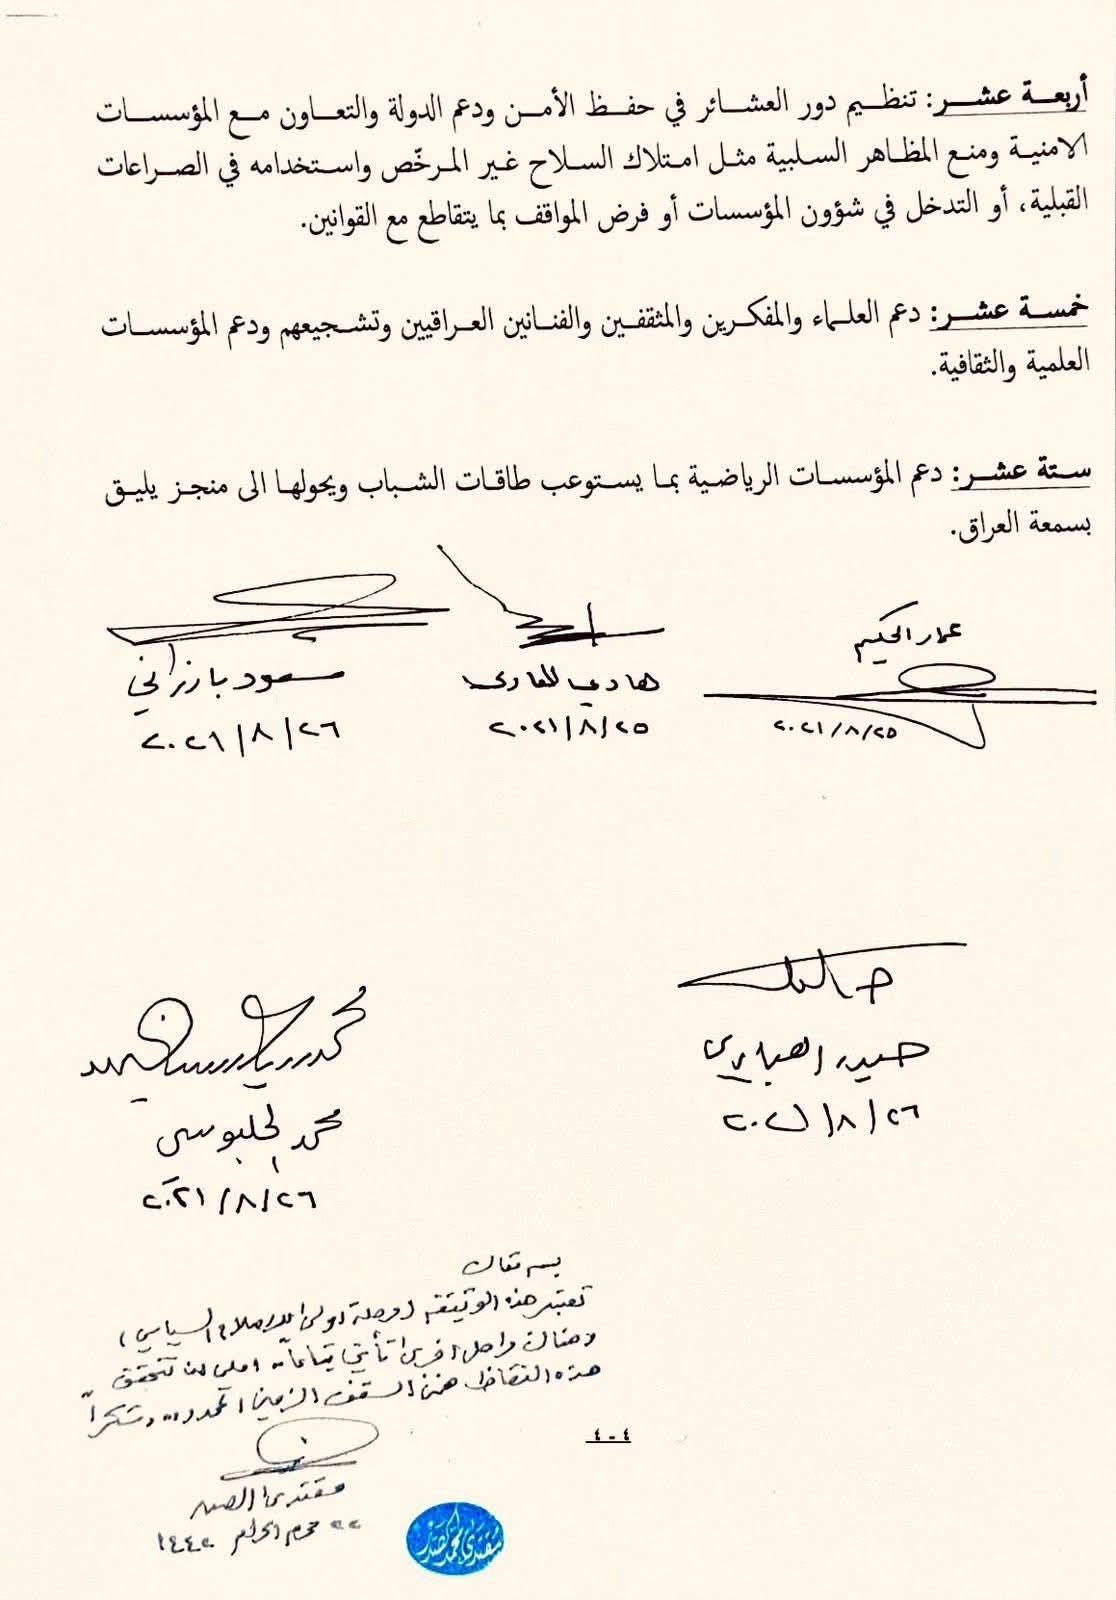 أربعة عشر: تنظيم دور العشائر في حفظ الأمن ودعم الدولة والتعاون مع المؤسسات
الامنية ومنع المظاهر السلبية مثل امتلاك السلاح غير المرخّص واستخدامه في الصراعات
القبلية، أو التدخل في شؤون المؤسسات أو فرض المواقف بما يتقاطع مع القوانين.
خمسة عشر: دعم العلماء والمفكرين والمثقفين والفنانين العراقيين وتشجيعهم ودعم المؤسسات
العلمية والثقافية.
ستة عشر: دعم المؤسسات الرياضية بما يستوعب طاقات الشباب ويحولها الى منجز يليق
بسمعة العراق.
عمار الحكيم
٢٠٢١/٨/٢٥
هادي العامري
٢٠٢١/٨/٢٥
مسعود بارزاني
٢٠٢١/٨/٢٦
حيدر العبادي
٢٠٢١/٨/٢٦
محمد الحلبوسي
٢٠٢١/٨/٢٦
بسمه تعالى
تعتبر هذه الوثيقة مرحلة اولى للاصلاح السياسي
وهناك مراحل اخرى تأتي تباعاً املي ان تتحقق
هذه النقاط ضمن السقف الزمني المحدد وشكراً
مقتدى الصدر
٢٢ محرم الحرام ١٤٤٢
٤ - ٤
مقتدى محمد الصدر